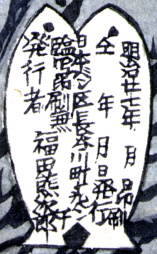 明治廿七年 月 日印刷
仝 年 月 日発行
日本バシ区長谷川町十九バンチ
臨写印刷兼
発行者 福田熊次郎